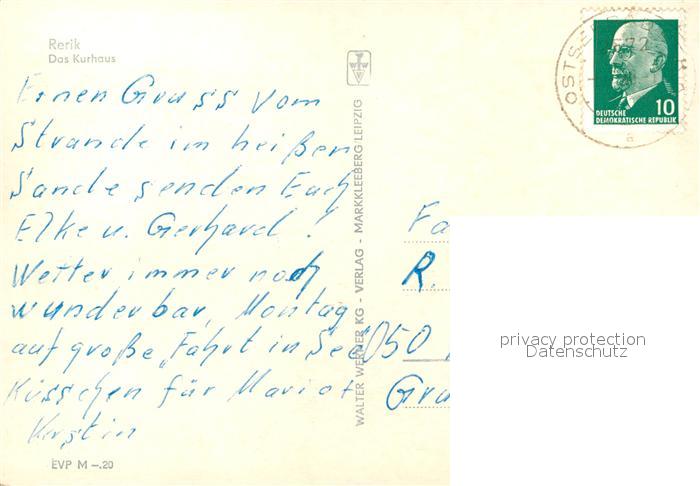 Rerik
Das Kurhaus
Einen Gruss vom
Strande im heißen
Sande senden Euch
Elke u. Gerhard!
Wetter immer noch
wunderbar, Montag
auf große „Fahrt in See"
Küsschen für Mario +
Kerstin
EVP M –.20
WALTER WERNER KG - VERLAG - MARKKLEEBERG/LEIPZIG
OSTSEEBAD
10
DEUTSCHE
DEMOKRATISCHE REPUBLIK
a
Fa
R.
050
Gru
privacy protection
Datenschutz